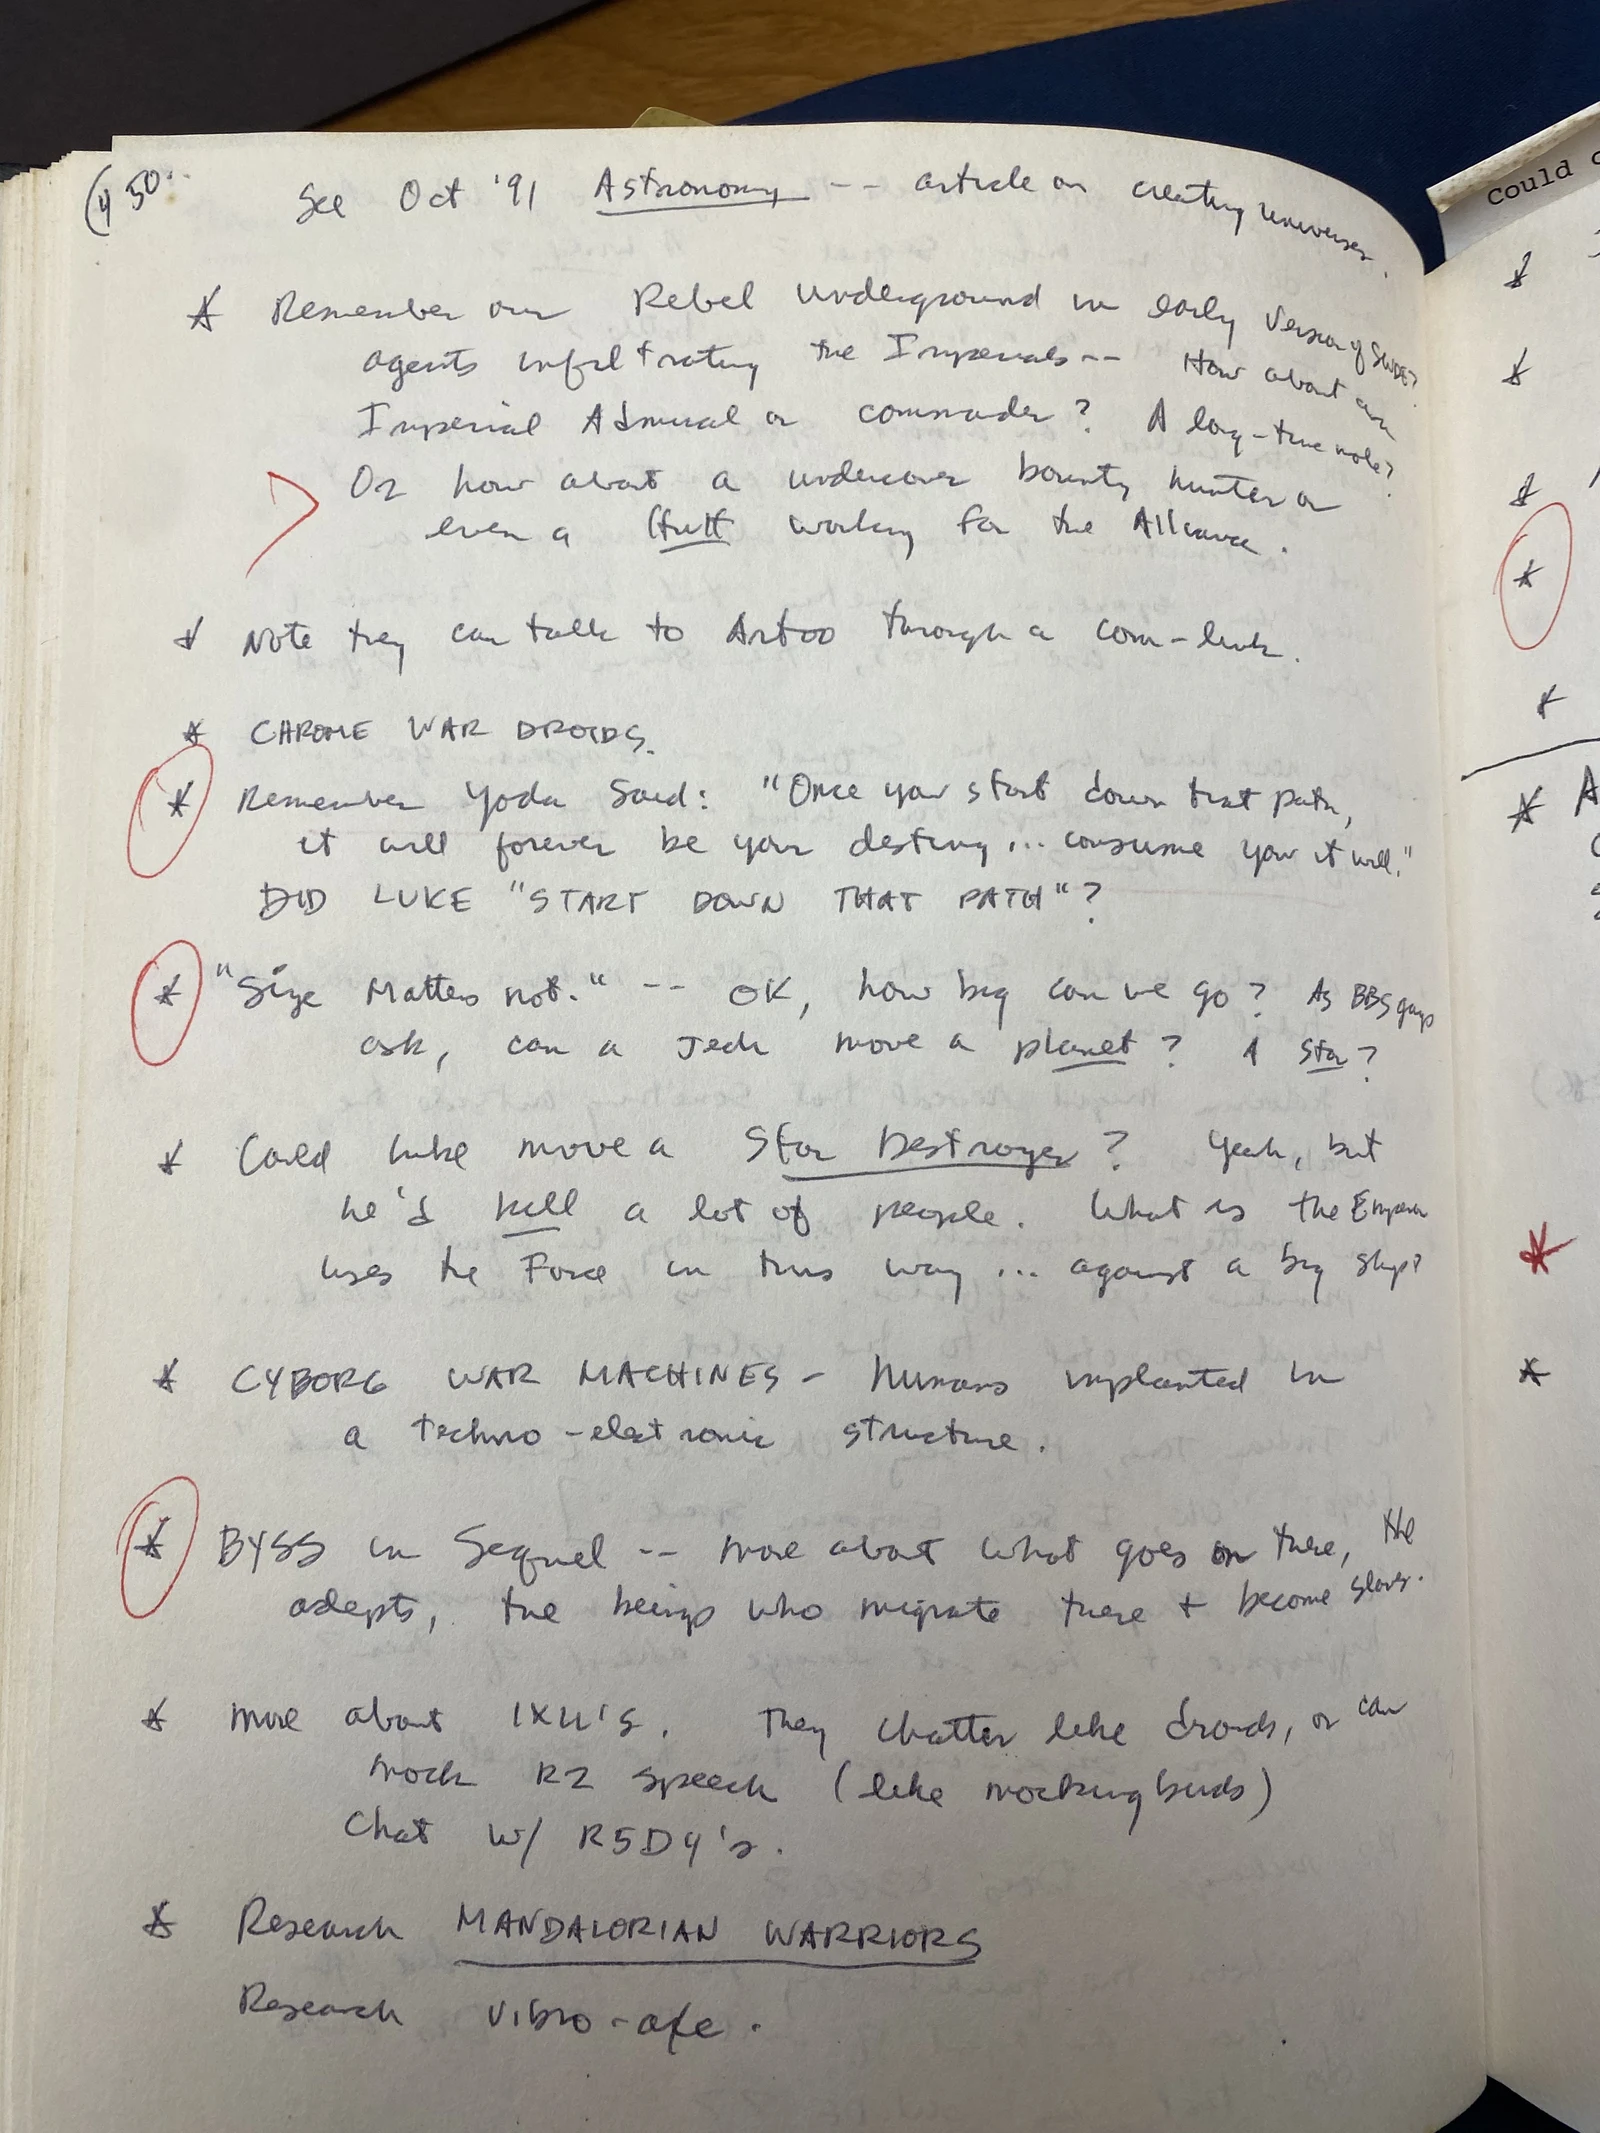 50
See Oct '91 Astronomy -- article on creating universes.
* Remember our Rebel underground in early version of SWDE?
agents infiltrating the Imperials -- How about an
Imperial Admiral or commander? A long-time mole?
Or how about a undercover bounty hunter or
even a Hutt working for the Alliance.
* Note they can talk to Artoo through a com-link.
* CHROME WAR DROIDS.
* Remember Yoda said: "Once you start down that path,
it will forever be your destiny ... consume you it will."
DID LUKE "START DOWN THAT PATH"?
* "Size matters not." -- OK, how big can we go? As BBS guys
ask, can a Jedi move a planet? A star?
* Could Luke move a Star Destroyer? Yeah, but
he'd kill a lot of people. What is the Emperor
uses the Force in this way ... against a big ship?
* CYBORG WAR MACHINES - humans implanted in
a techno-electronic structure.
* BYSS in Sequel -- more about what goes on there, the
adepts, the beings who migrate there + become slaves.
* more about IXLL'S. They chatter like droids, or can
mock R2 speech (like mockingbirds)
Chat w/ R5D4's.
* Research MANDALORIAN WARRIORS
Research vibro-axe.
Could
* A